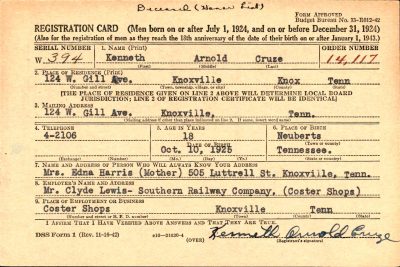 Deceased (Honor List)
FORM APPROVED
Budget Bureau No. 33-R012-42
REGISTRATION CARD—(Men born on or after July 1, 1924, and on or before December 31, 1924)
(Also for the registration of men as they reach the 18th anniversary of the date of their birth on or after January 1, 1943.)
SERIAL NUMBER 1. NAME (Print) ORDER NUMBER
W. 394 Kenneth Arnold Cruze 14,117
(First) (Middle) (Last)
2. PLACE OF RESIDENCE (Print)
124 W. Gill Ave. Knoxville Knox Tenn
(Number and street) (Town, township, village, or city) (County) (State)
[THE PLACE OF RESIDENCE GIVEN ON LINE 2 ABOVE WILL DETERMINE LOCAL BOARD
JURISDICTION; LINE 2 OF REGISTRATION CERTIFICATE WILL BE IDENTICAL]
3. MAILING ADDRESS
124 W. Gill Ave. Knoxville, Tenn.
[Mailing address if other than place indicated on line 2. If same, insert word same]
4. TELEPHONE 5. AGE IN YEARS 6. PLACE OF BIRTH
4-2106 18 Neuberts
DATE OF BIRTH (Town or county)
Oct. 10, 1925 Tennessee.
(Exchange) (Number) (Mo.) (Day) (Yr.) (State or country)
7. NAME AND ADDRESS OF PERSON WHO WILL ALWAYS KNOW YOUR ADDRESS
Mrs. Edna Harris (Mother) 505 Luttrell St. Knoxville, Tenn.
8. EMPLOYER'S NAME AND ADDRESS
Mr. Clyde Lewis- Southern Railway Company, (Coster Shops)
9. PLACE OF EMPLOYMENT OR BUSINESS
Coster Shops Knoxville Tenn
(Number and street or R. F. D. number) (Town) (County) (State)
I AFFIRM THAT I HAVE VERIFIED ABOVE ANSWERS AND THAT THEY ARE TRUE.
DSS Form 1 (Rev. 11-16-42) (OVER) Kenneth Arnold Cruze
(Registrant's signature)